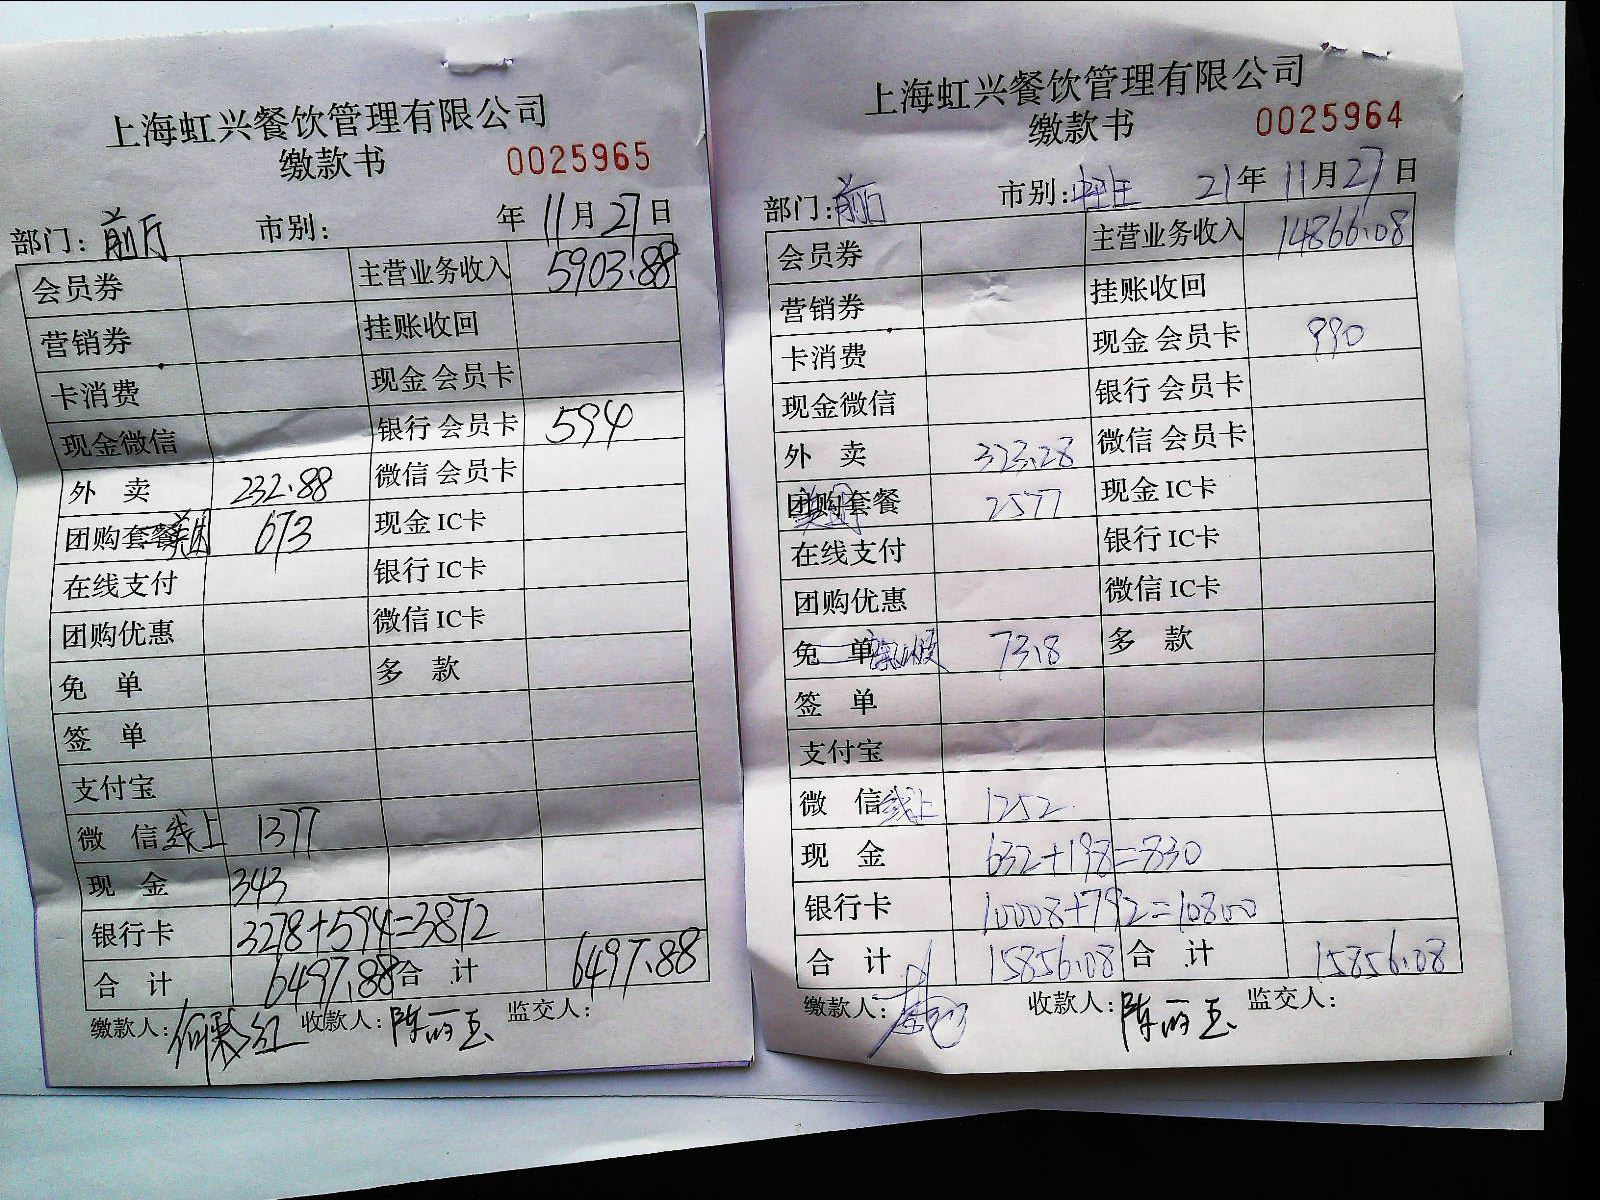 上海虹兴餐饮管理有限公司
缴款书 0025965
部门：前厅 市别： 年 11月27日
会员券 主营业务收入 5903.88
营销券 挂账收回
卡消费 现金会员卡
现金微信 银行会员卡 594
外 卖 232.88 微信会员卡
团购套餐美团 673 现金IC卡
在线支付 银行IC卡
团购优惠 微信IC卡
免 单 多 款
签 单
支付宝
微 信线上 1377
现 金 343
银行卡 3278+594=3872
合 计 6497.88 合 计 6497.88
缴款人：何彩红 收款人：陈丽玉 监交人：
上海虹兴餐饮管理有限公司
缴款书 0025964
部门：前厅 市别： 21年11月27日
会员券 主营业务收入 14866.08
营销券 挂账收回
卡消费 现金会员卡 990
现金微信 银行会员卡
外 卖 323.28 微信会员卡
团购套餐 美团 2577 现金IC卡
在线支付 银行IC卡
团购优惠 微信IC卡
免 单 73.8 多 款
签 单
支付宝
微 信线上 1252
现 金 632+198=830
银行卡 10008+792=10800
合 计 15856.08 合 计 15856.08
缴款人： 收款人：陈丽玉 监交人：